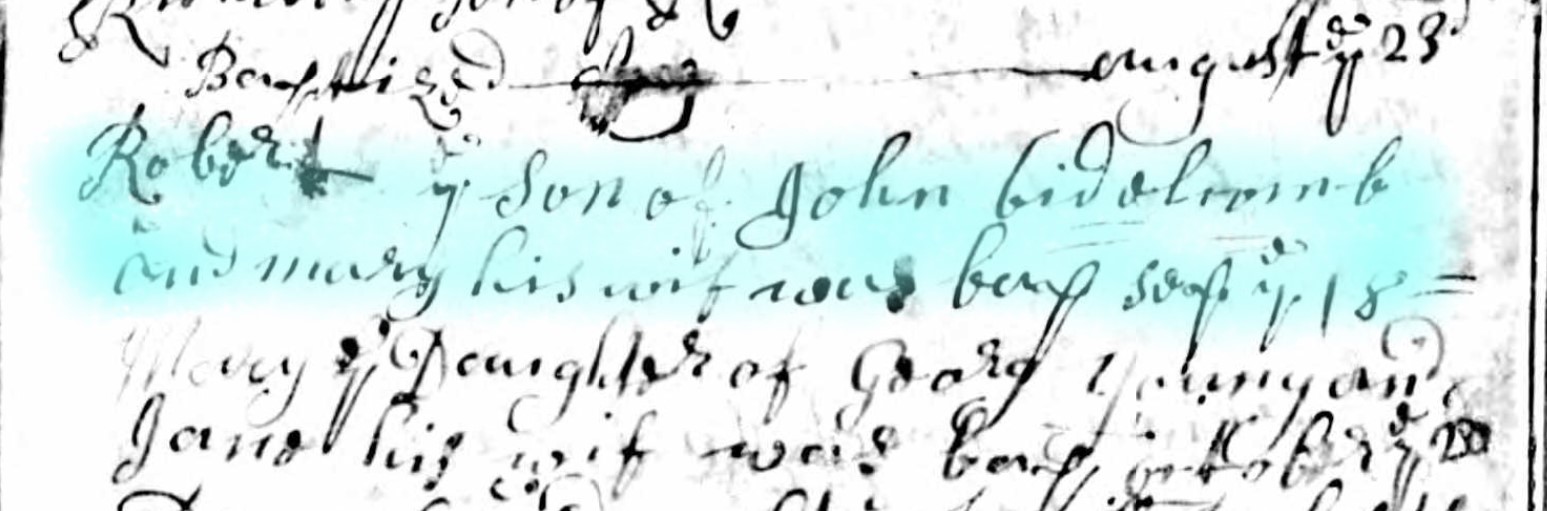 son of
Baptized august ye 23
Robert ye son of John bidelcomb
and mary his wif was bap sep ye 18
Mary ye Daughter of Georg Young and
Jane his wif was bap october ye